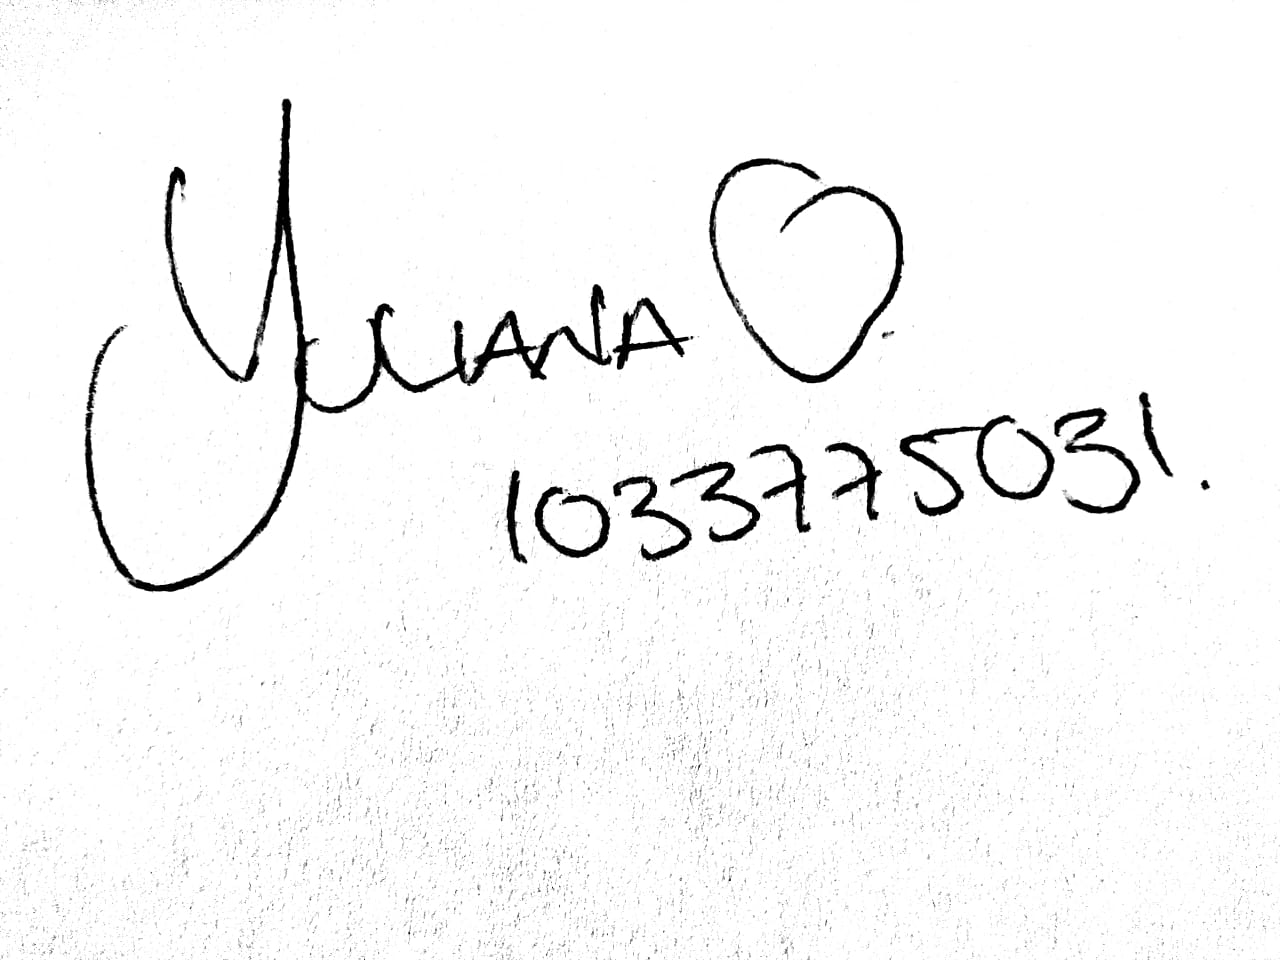 Yuliana
1033775031.